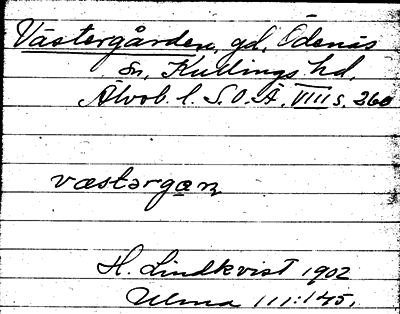 Västergården, gd, Ödenäs
sn, Kullings hd.
Älvsb. l. S.O.Ä. VIII s. 260
væstərgɑn
H. Lindkvist 1902
Ulma 111:145.